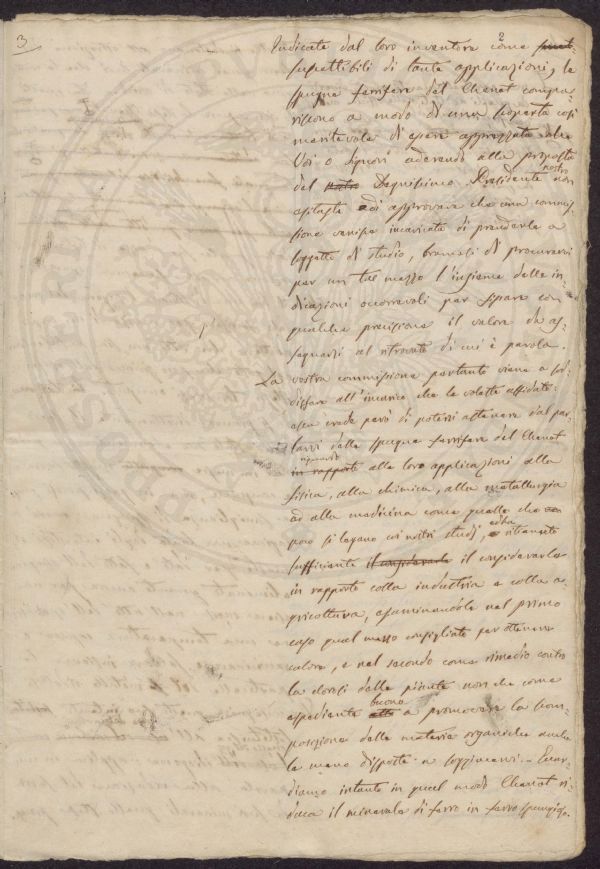 3
2
Indicate dal loro inventore come
suscettibili di tante applicazioni, le
spugne ferrifere del Chenot compa-
riscono a modo di una scoperta così
meritevole di essere apprezzata che
Voi o Signori aderendo alla proposta
del Degnissimo Presidente nostro non
esitaste di approvare che una commis-
sione venisse incaricata di prenderla a
soggetto di studio, bramosi di procurarvi
per un tal mezzo l'insieme delle in-
dicazioni occorrevoli per fissare con
qualche precisione il valore da as-
segnarsi al ritrovato di cui è parola.
La vostra commissione pertanto viene a sod-
disfare all'incarico che le voleste affidato.
essa crede però di potersi astenere dal par-
larvi delle spugne ferrifere del Chenot
riguardo
in rapporto alle loro applicazioni alla
fisica, alla chimica, alla metallurgia
ed alla medicina come quelle che
poco si legano coi nostri studj, ed ha ritenuto
sufficiente il considerarle il considerarle
in rapporto colla industria e colla a-
gricoltura, esaminandole nel primo
caso qual mezzo consigliato per ottenere
calore, e nel secondo come rimedio contro
la clorosi delle piante non che come
espediente buono a promovere la scom-
posizione delle materie organiche anche
le meno disposte a soggiacervi. Guar-
diamo intanto in qual modo Chenot ri-
duca il minerale di ferro in ferro spugnoso.